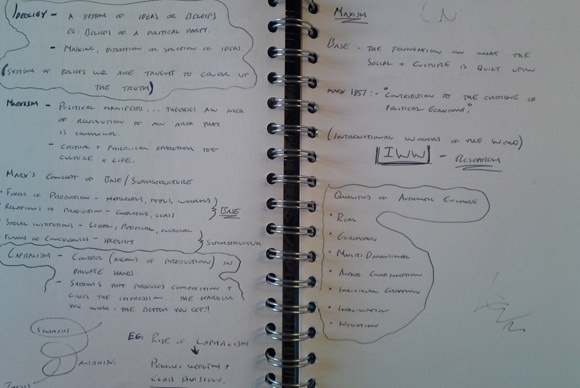 IDEOLOGY - A SYSTEM OF IDEAS OR BELIEFS
EG: BELIEFS OF A POLITICAL PARTY.
- MASKING, DISTORTION OR SELECTION OF IDEAS.
(SYSTEM OF BELIEFS WE ARE TAUGHT TO COLOUR UP
THE TRUTH)
MARXISM - POLITICAL MANIFESTO... THEORIES AN AREA
OF REVOLUTION TO AN AREA THAT
IS COMMUNAL.
CULTURE + LIFE.
MARX'S CONCEPT OF BASE/SUPERSTRUCTURE
FORCES OF PRODUCTION - MATERIALS, TOOLS, WORKERS
RELATIONS OF PRODUCTION - CLASS
} BASE
SOCIAL INSTITUTIONS - LEGAL, POLITICAL,
FORMS OF CONSCIOUSNESS -
} SUPERSTRUCTURE
CAPITALISM - CONTROL (MEANS OF PRODUCTION) IN
PRIVATE HANDS
- SYSTEMS THAT PRODUCES COMPETITION +
GIVES THE IMPRESSION - THE HARDER
YOU WORK - THE BETTER YOU GET!!
SYNTHESIS
ANTITHESIS.
THESIS
EG: RISE OF CAPITALISM
↓
CLASS DIVISION.
MAXISM
BASE - THE FOUNDATION ON WHAT THE
SOCIAL + CULTURE IS BUILT UPON
MARX 1857:- "CONTRIBUTION TO THE CRITIQUE OF
POLITICAL ECONOMY."
(INTERNATIONAL WORKERS OF THE WORLD)
IWW -
QUALITIES OF AUTHENTIC CULTURE
• REAL
• EUROPEAN
• MULTI DIMENSIONAL
• ACTIVE CONSUMPTION
• INDIVIDUAL CREATION
• IMAGINATION
• NEGATION